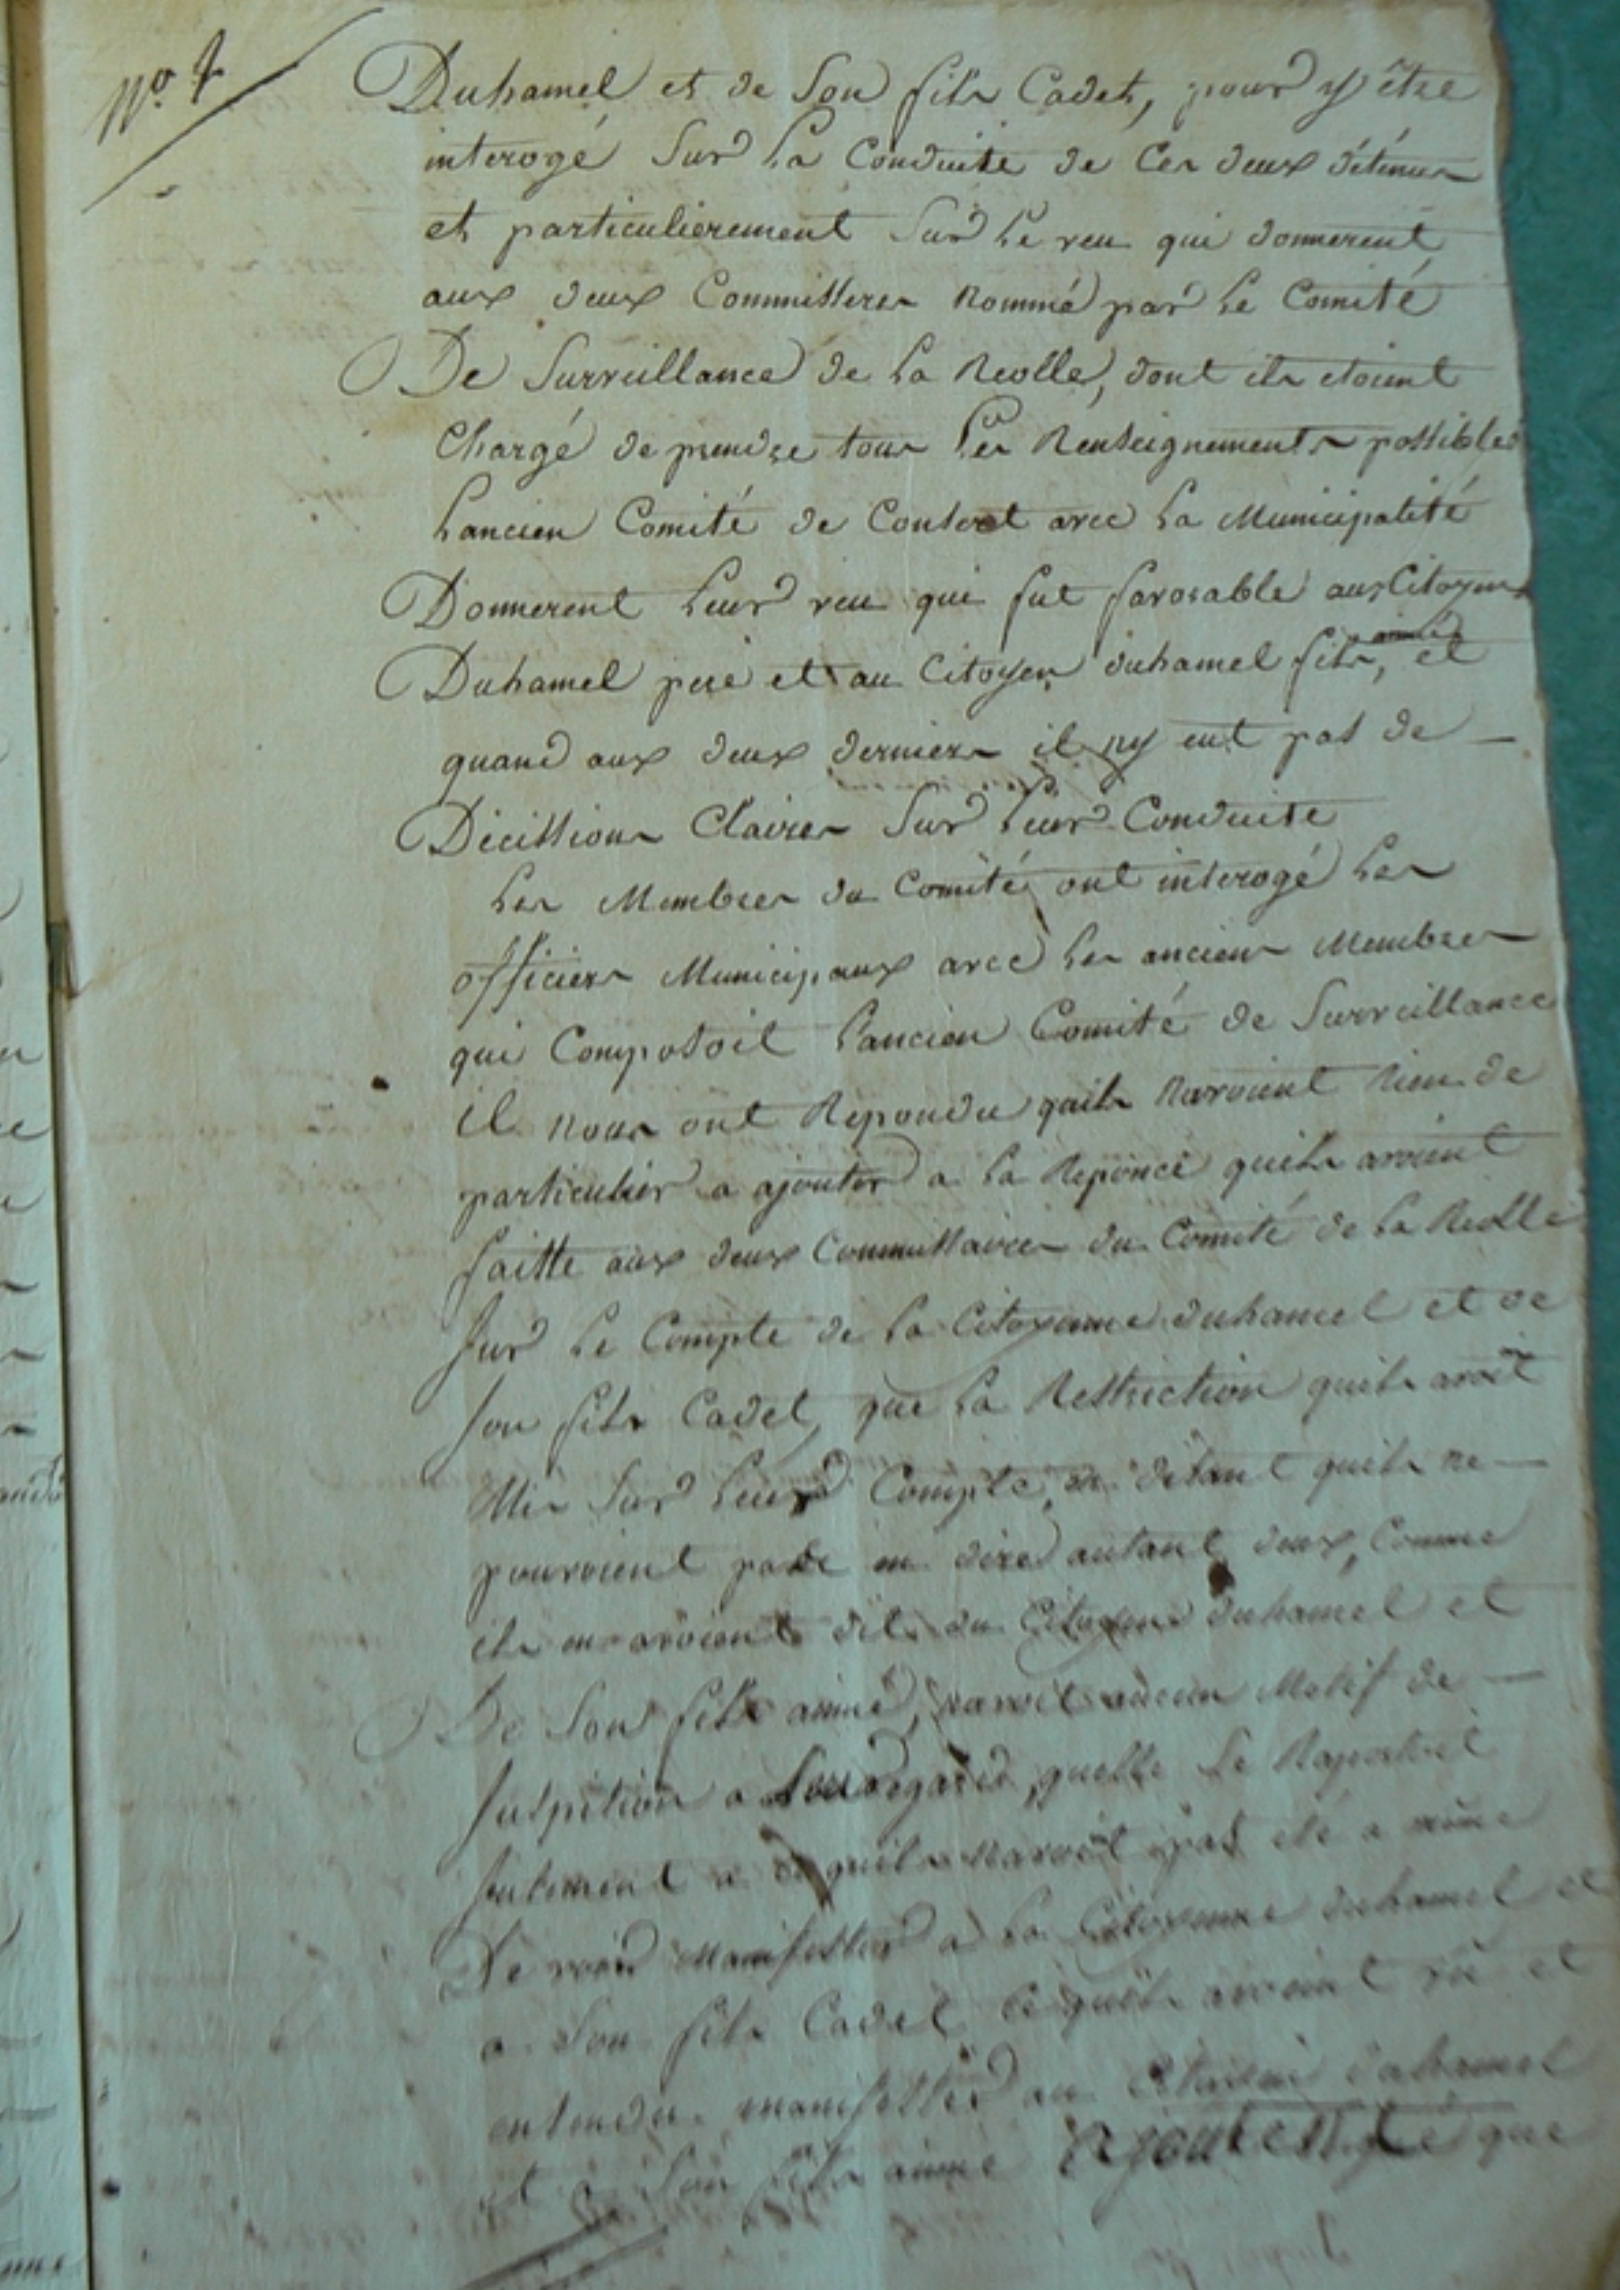 No. 7
Duhamel et de Son fils Cadet, pour y être
interogé Sur La Conduite de Ces deux détenus
et particulierement Sur Le veu qui donnerent
aux deux Commisseres Nommé par Le Comité
De Surveillance de La Reolle, dont ils etoient
Chargé de prendre tous Les Renseignements possibles
Lancien Comité de Contert avec La Municipalité
Donnerent Leur veu qui fut favorable aux Citoyens
Duhamel pere et au Citoyen duhamel fils ainé, et
quand aux deux derniers il ny eut pas de
Décissions Claires Sur Leur Conduite
Les Membres du Comité ont interogé Les
officiers Municipaux avec Les anciens Membres
qui Composoit L'ancien Comité de Surveillance
il nous ont Repondu quils Navoient Rien de
particulier a ajouter a La Reponce quils avoient
faitte aux deux Commissaires du Comité de La Reolle
Sur Le Compte de La Citoyenne duhamel et de
Son fils Cadet, que La Restriction quils avoit
Mis Sur Leur Compte, en disant quils ne
pouvoient pas en dire autant deux, Comme
ils en avoient dit du Citoyen duhamel et
De Son fils ainné, navoit aucun Motif de
Suspition a Leur egard, quelle Se Raportoit
Seulement a ce quils Navoit pas eté a même
De voir Manifester a La Citoyenne duhamel et
a Son fils Cadet Ce quils avoient vu et
entendu manifester au Citoyen Duhamel
et a Son fils ainné que